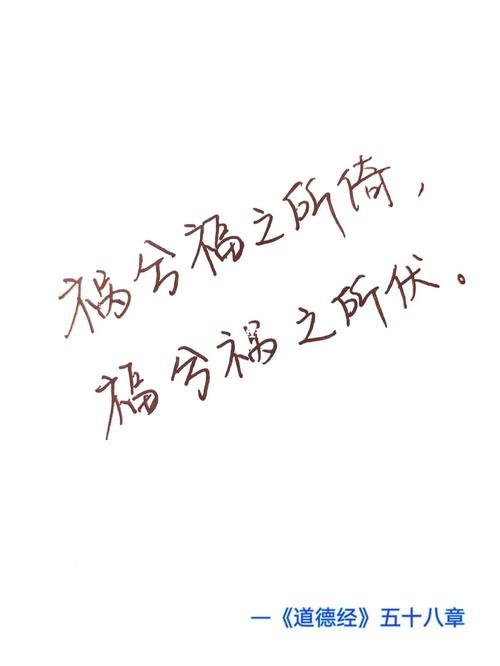 祸兮福之所倚，
福兮祸之所伏。
—《道德经》五十八章